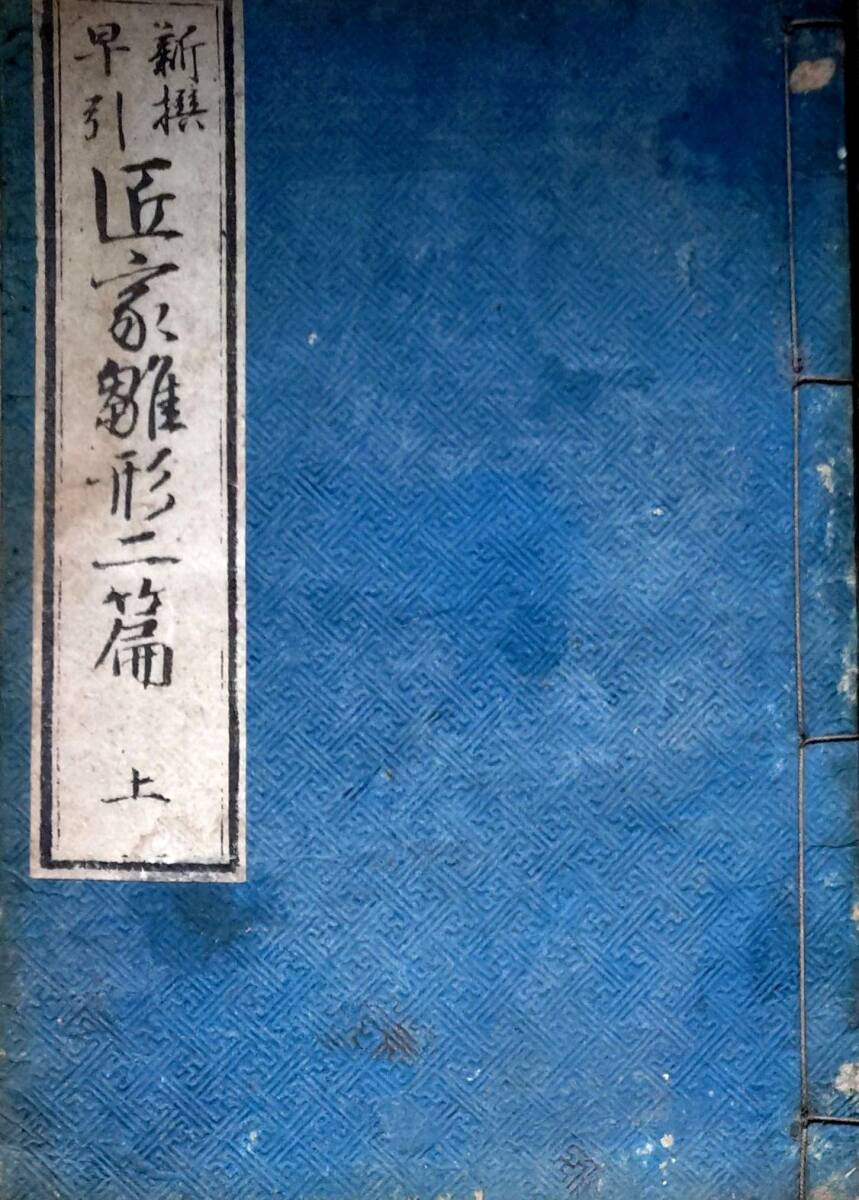 新撰
早引
匠家雛形二篇
上